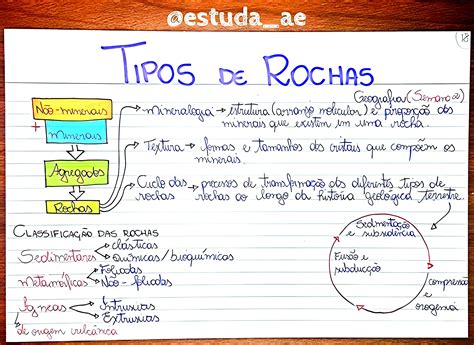 @estuda_ae
18
TIPOS DE ROCHAS
Geografia (Semana 2)
Não-minerais
+
Minerais
Agregados
Rochas
Mineralogia → estrutura (arranjo molecular) e proporção dos
minerais que existem em uma rocha.
Textura → formas e tamanhos dos cristais que compõem os
minerais.
Ciclo das → processos de transformação dos diferentes tipos de
rochas rochas ao longo da história geológica terrestre.
CLASSIFICAÇÃO DAS ROCHAS
Sedimentares → clásticas
→ Químicas/bioquímicas
Metamórficas → Foliadas
→ Não-foliadas
Ígneas → Intrusivas
→ Extrusivas
→ de origem vulcânica
Sedimentação
e subsidência
Fusão e
subducção
compressão
e
orogenia